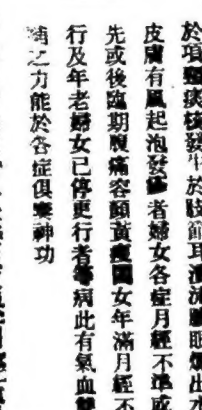 於項癰痰核發生於肢節耳濃沸眼烟出水
皮膚有風起泡發者婦女各症月經不準或
先或後臨期腹痛容顏黃瘦閨女年滿月經不
行及年老婦女已停更行者等病此有氣血雙
補之力能於各症俱奏神功